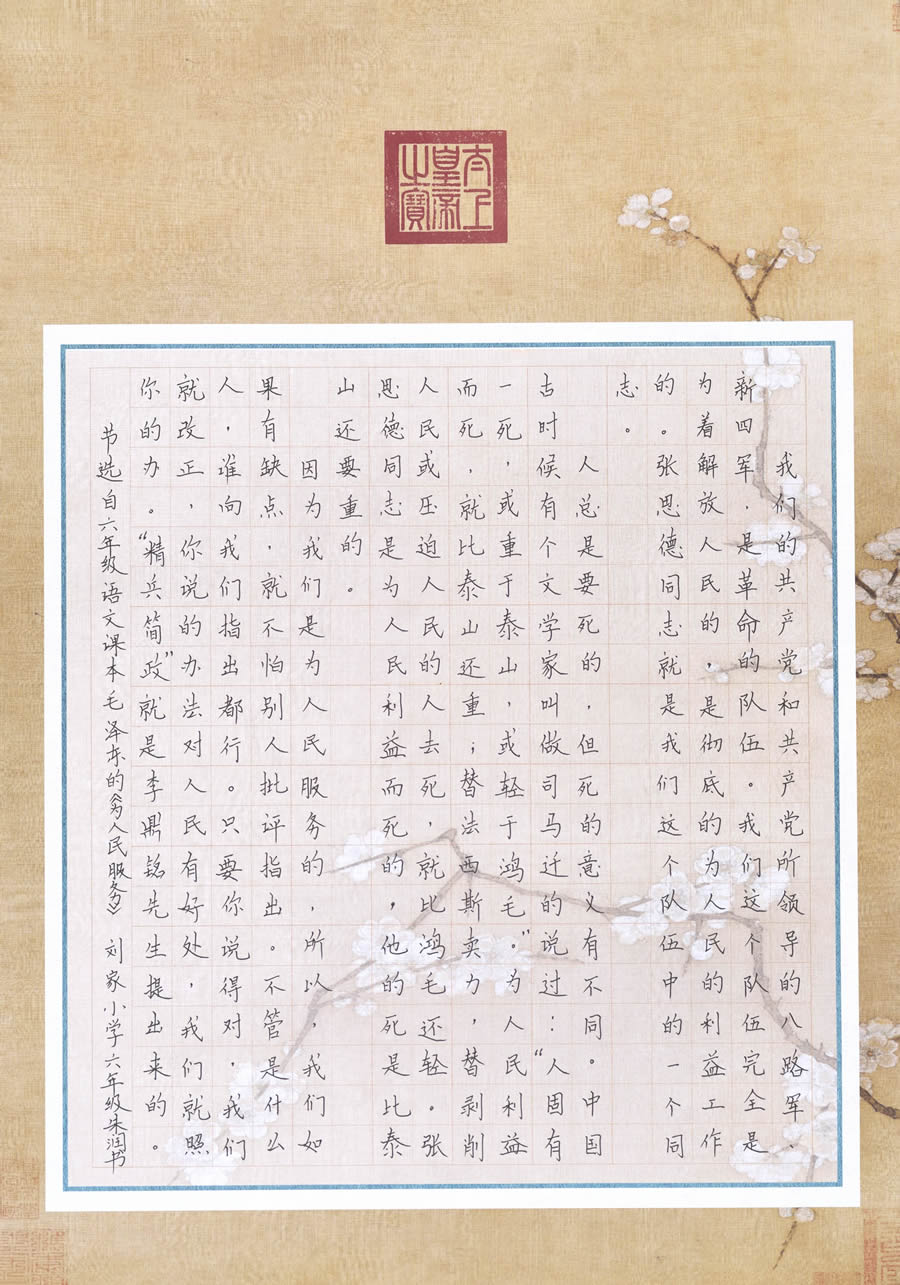 太上
皇帝
之寶
我们的共产党和共产党所领导的八路军、
新四军，是革命的队伍。我们这个队伍完全是
为着解放人民的，是彻底的为人民的利益工作
的。张思德同志就是我们这个队伍中的一个同
志。
人总是要死的，但死的意义有不同。中国
古时候有个文学家叫做司马迁的说过：“人固有
一死，或重于泰山，或轻于鸿毛。”为人民利益
而死，就比泰山还重；替法西斯卖力，替剥削
人民或压迫人民的人去死，就比鸿毛还轻。张
思德同志是为人民利益而死的，他的死是比泰
山还要重的。
因为我们是为人民服务的，所以，我们如
果有缺点，就不怕别人批评指出。不管是什么
人，谁向我们指出都行。只要你说得对，我们
就改正，你说的办法对人民有好处，我们就照
你的办。“精兵简政”就是李鼎铭先生提出来的。
节选自六年级语文课本毛泽东的《为人民服务》 刘家小学六年级朱润书